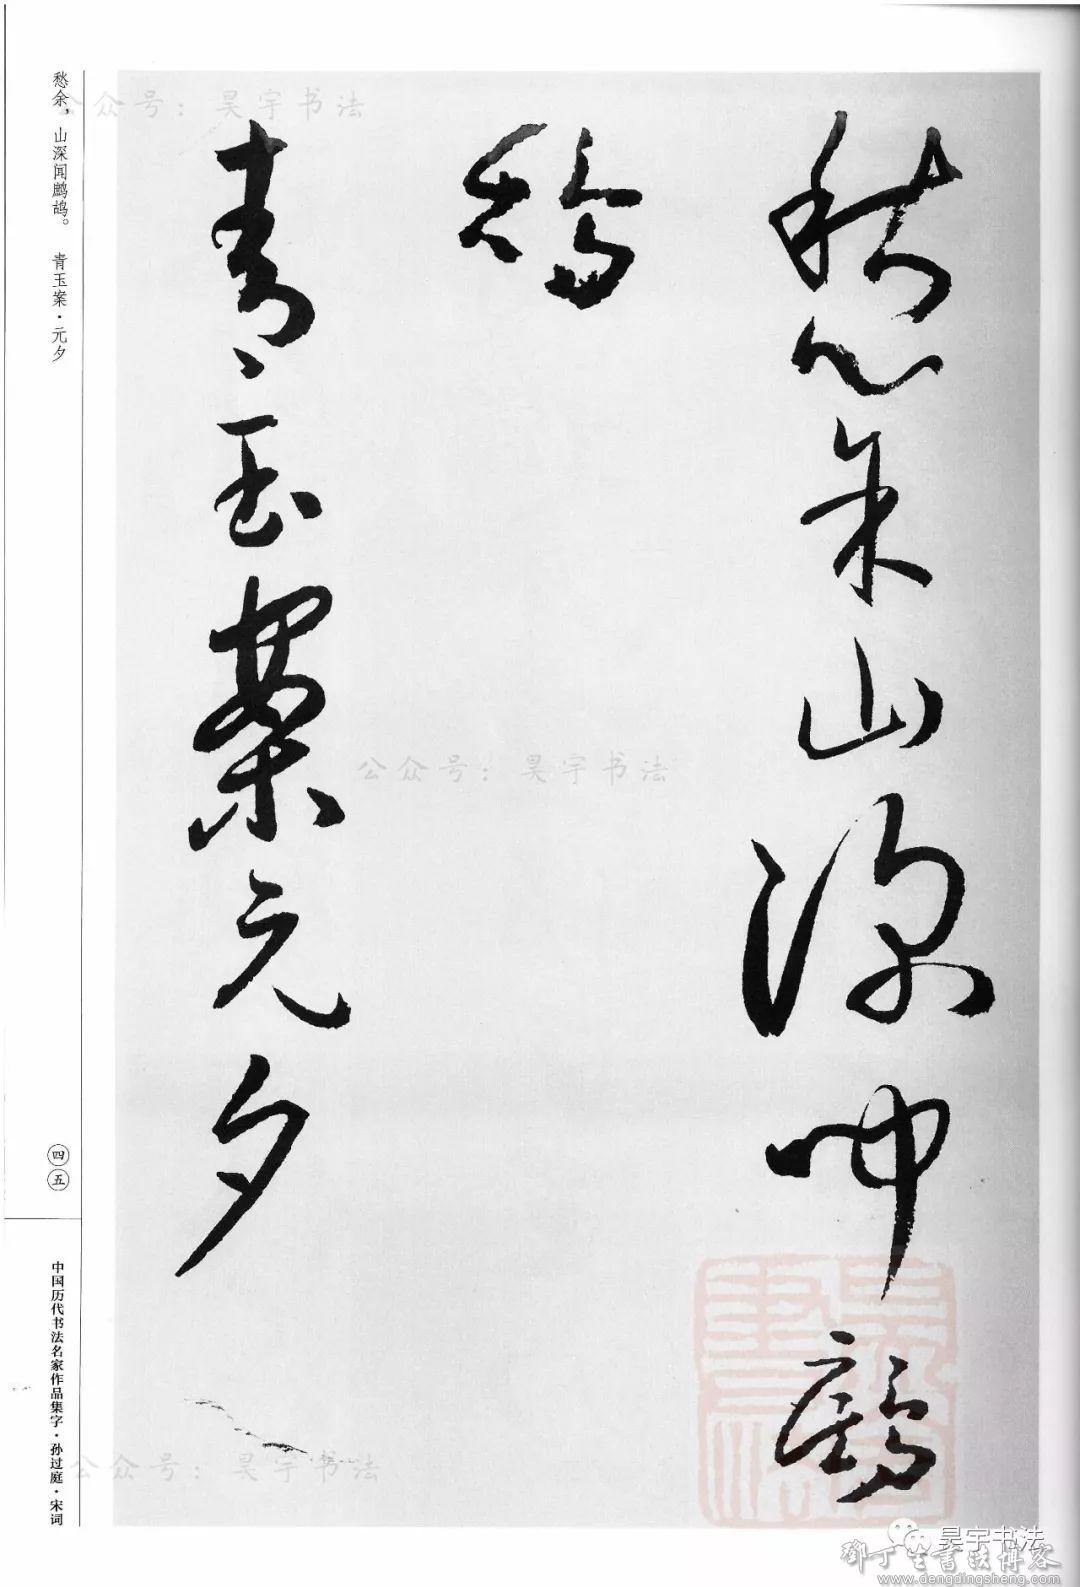 愁余山深闻鹧
鸪
青玉案元夕
愁余，山深闻鹧鸪。 青玉案·元夕
四五
中国历代书法名家作品集字·孙过庭·宋词
公众号：昊宇书法
公众号：昊宇书法
公众号：昊宇书法
昊宇书法
鄧丁生書法博客
www.dengdingsheng.com